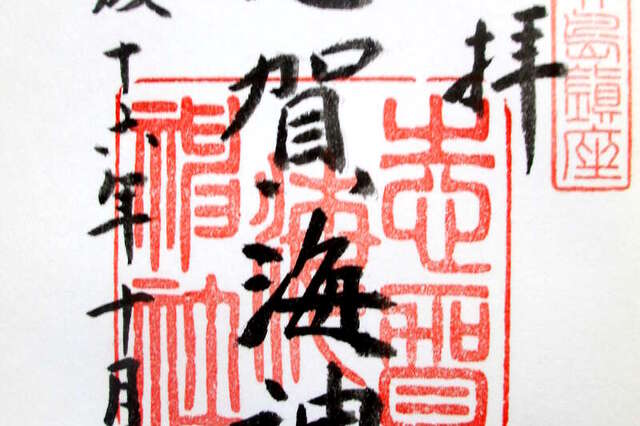 島鎮座
拝
志賀海神
志賀
海
神社
成十六年十月